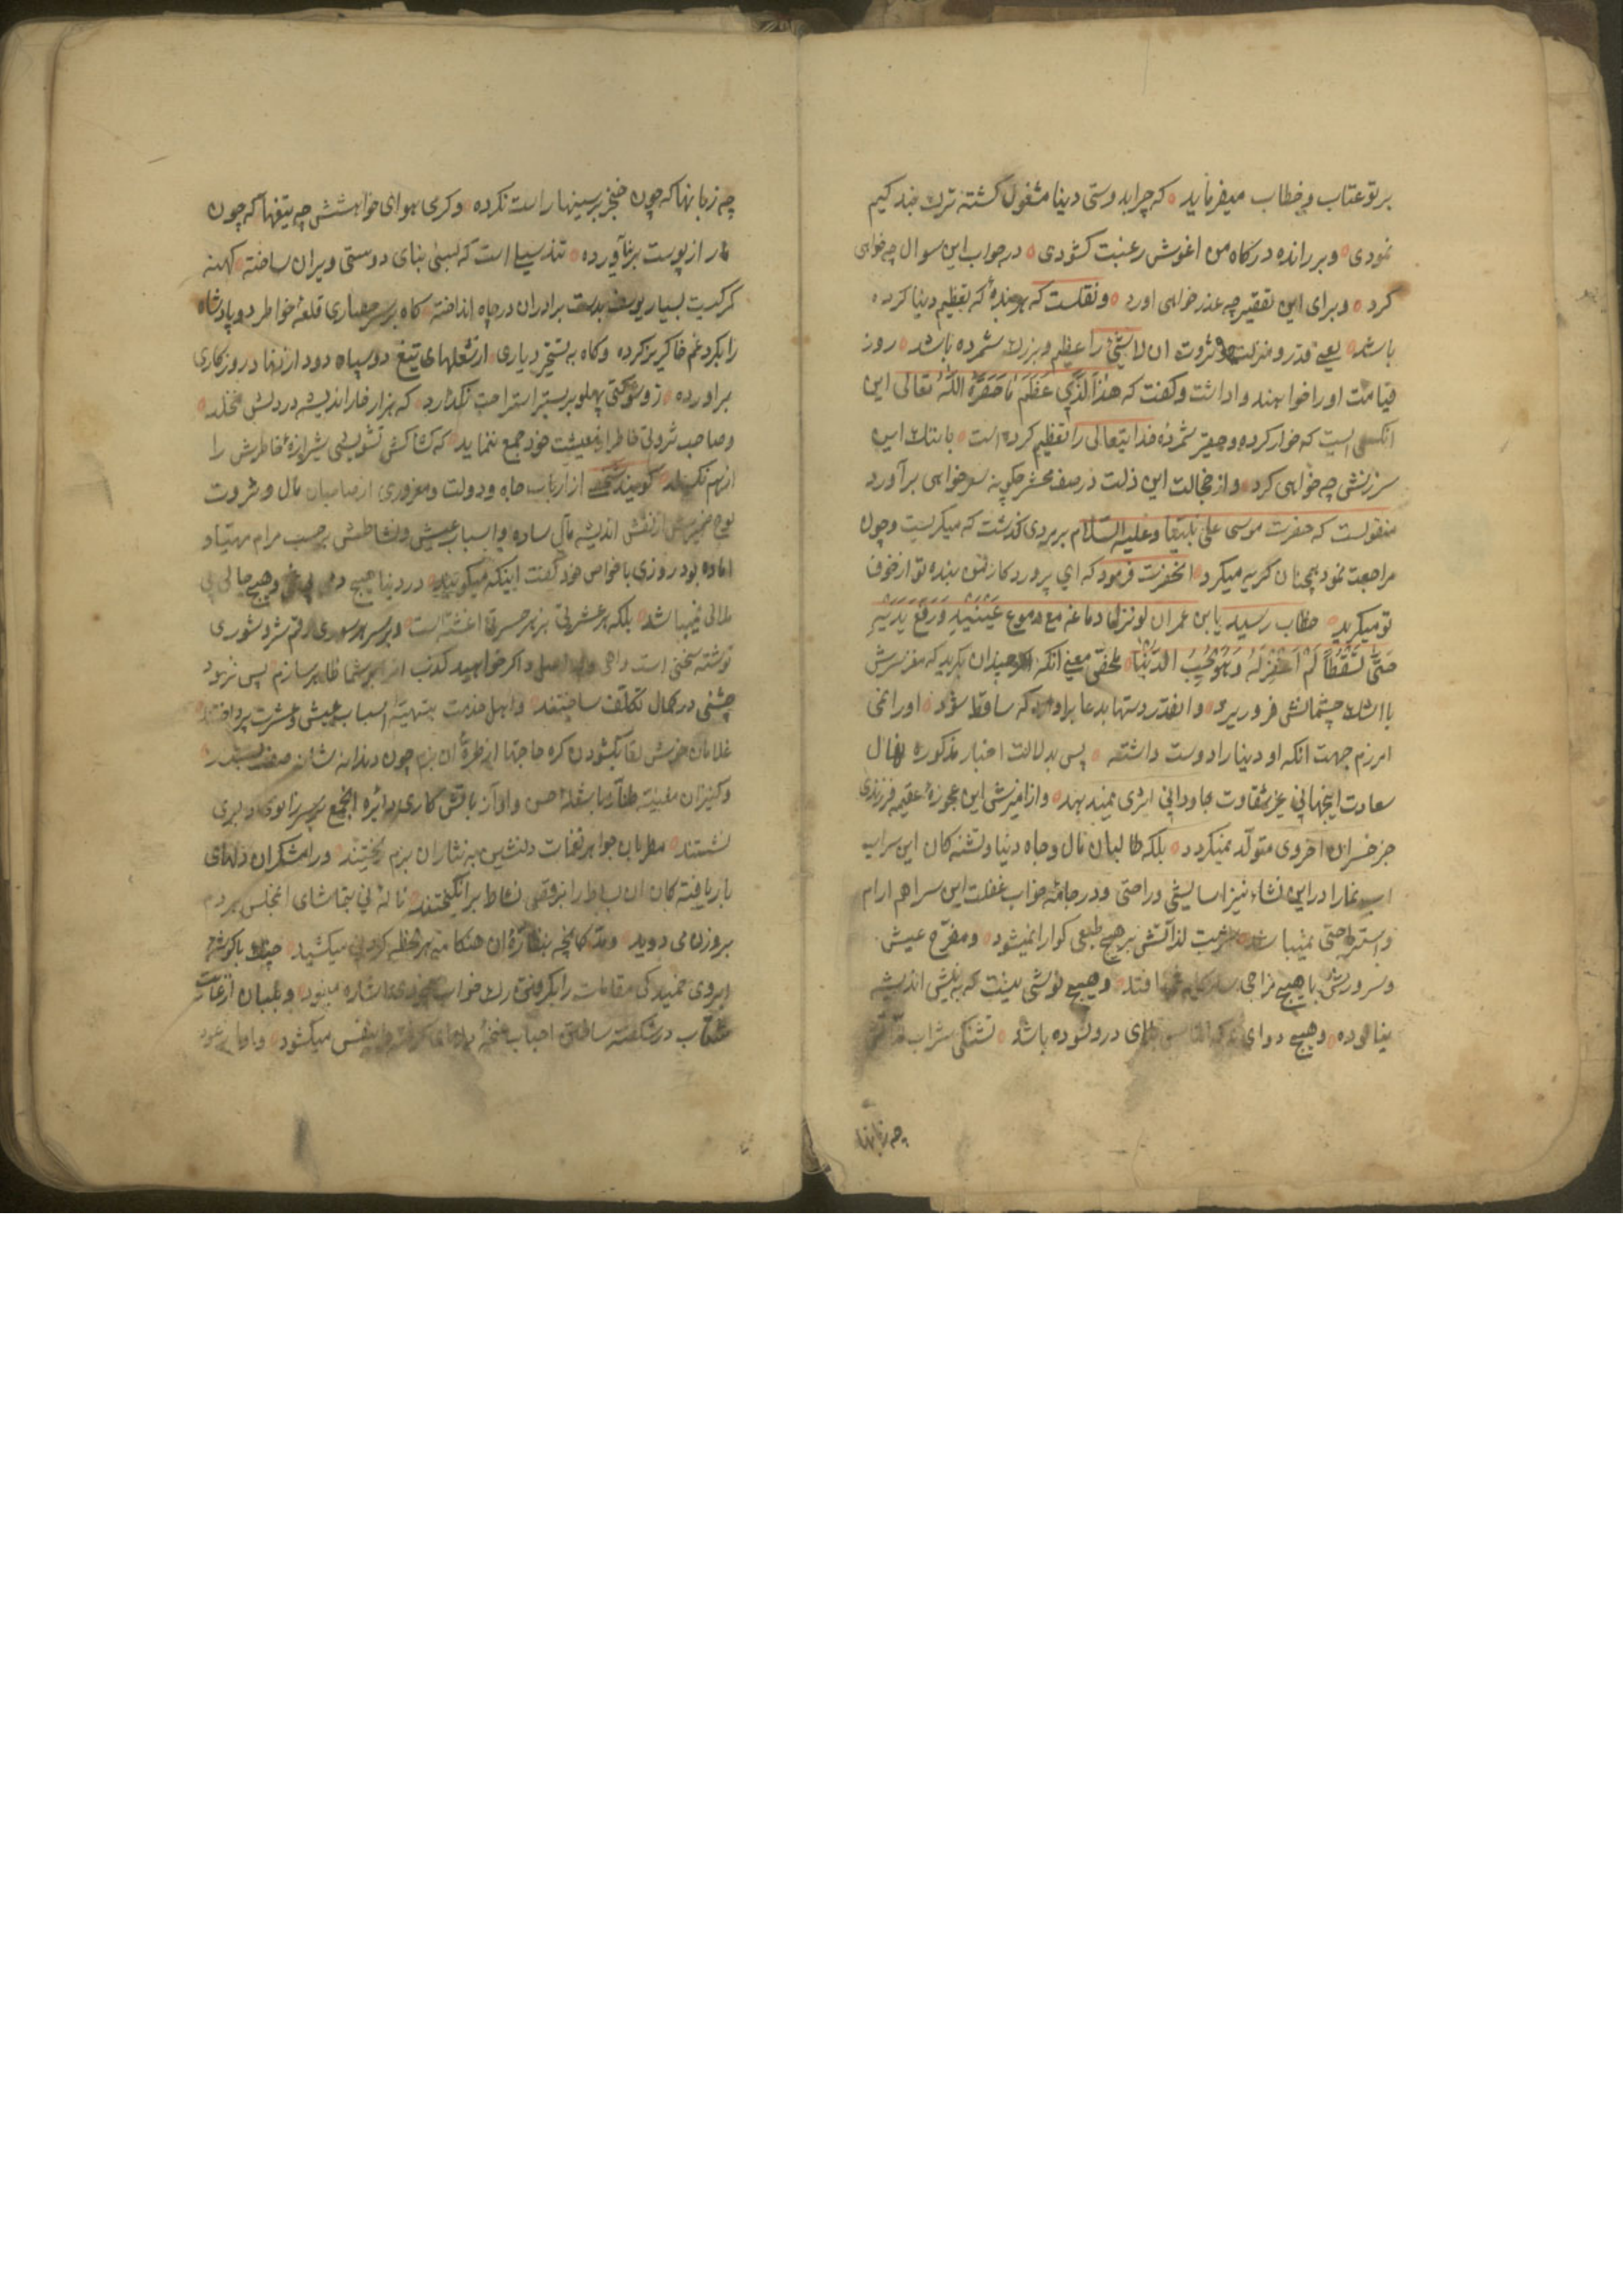 بر تو عتاب و خطاب میفرماید که چرا بدوستی دنیا مشغول کشته ترک بندکیم
نمودی و بر رانده درکاه من اغوش رغبت کشودی در جواب این سوال چه خواهی
کرد و برای این تقصیر چه عذر خواهی اورد و نقلست که هر بندهٔ که تعظیم دنیا کرده
باشد یعنی قدر و منزلت و ثروت ان لاشیٔ را عظیم و بزرک شمرده باشد روز
قیامت او را خواهند واداشت و کفت که هٰذَا الَّذِي عَظَّمَ مَا حَقَّرَهُ اللّٰهُ تعالی این
انکسی است که خوار کرده و حقیر شمردهٔ خدایتعالی را تعظیم کرده است با ننک این
سرزنش چه خواهی کرد و از خجالت این ذلت در صف محشر چکونه سر خواهی برآورد
منقولست که حضرت موسی علی نبینا و علیه السلام بر مردی کذشت که میکریست و چون
مراجعت نمود همچنان کریه میکرد انحضرت فرمود که ای پروردکار من بنده تو از خوف
تو میکرید خطاب رسید یا بن عمران لو نزل دماغه مع دموع عَيْنَيْهِ وَرَفَعَ يَدَيْهِ
حَتّٰى تَسْقُطَا لَمْ اَغْفِرْ لَهُ وَهُوَ يُحِبُّ الدُّنْيَا ملخص معنی انکه هر چندان بکرید که مغز سرش
با اشک چشمانش فرو ریزد و انقدر دستها بدعا بردارد که ساقط شود او را نمی
امرزم جهت انکه او دنیا را دوست داشته پس بدلالت اخبار مذکوره نهال
سعادت اینجهانی غیر شقاوت جاودانی ثمری نمیدهد و از امیزش این عجوزهٔ عقیمه فرزندی
جز خسران اخروی متولد نمیکردد بلکه طالبان مال و جاه دنیا و تشنه کان این سراب
اب نما را در این نشاء نیز اسایشی و راحتی و در جامهٔ خواب غفلت این سرا هم ارام
و استراحتی نمیباشد شربت لذاتش بر هیچ طبعی کوارا نمیشود و مفرح عیش
و سرورش با هیچ مزاجی سازکار نمی افتد و هیچ نوشی نیست که به نیش اندیشه
نیالوده و هیچ دوای درو نبوده باشد تشنکی شراب
چه زبانها
چه زبانها که چون خنجر بر سینها راست نکرده و کرمی هوای خواهشش چه تیغها که چون
مار از پوست برنیآورده تند سیلی است که بسی بنای دوستی ویران ساخته کهنه
کرکیست بسیار یوسف بدست برادران در چاه انداخته کاه بر سر حصاری قلعهٔ خواطر دو پادشاه
را بکرد غم خاکریز کرده و کاه به تسخیر دیاری از شعلهای تیغ دو سپاه دود از نهاد روزکاری
براورده ذو شوکتی پهلو بر بستر استراحت نکذارد که هزار خار اندیشه در دلش نخلد
و صاحب ثروتی خاطر از معیشت خود جمع ننماید که کشاکش تشویشی شیرازهٔ خاطرش را
از هم نکسلد کویند شخصی از ارباب جاه و دولت و مغروری از صاحبان مال و ثروت
لوح ضمیرش از نقش اندیشه مآل ساده و اسباب عیش و نشاطش بر حسب مرام مهیا و
اماده بود روزی با خواص خود کفت اینکه میکویند در دنیا هیچ دلی بی غمی و هیچ حالی بی
ملالی نمیباشد بلکه هر عشرتی بزهر حسرتی اغشته است و بر سر هر سوری رقم شر و شوری
نوشته سخنی است واهی و بی اصل و اکر خواهید کذب انرا بر شما ظاهر سازم پس فرمود
جشنی در کمال تکلف ساختند و اهل خدمت بتهیهٔ اسباب عیش و عشرت پرداختند
غلامان خوش لقا بکشودن کره حاجتها از طرهٔ ان بزم چون دندانه شانه صف بستند
و کنیزان مغنیه طناز با شعلهٔ حسن و اواز باتش کاری دایره انجمع بر سر زانوی دلبری
نشستند مطربان جواهر نغمات دلنشین به نثار ان بزم ریختند و رامشکران دلهای
بار یافته کان ان بساط را برقص نشاط برانکیختند نالهٔ نی بتماشای انمجلس هر دم
بروزن می دوید و کمانچه بنظارهٔ ان هنکامه هر لحظه کردن میکشید
ابروی خمید کی مقامات را اشاره مینمود
در شکفته ساختن احباب غنچهٔ دلهای نفس میکشود